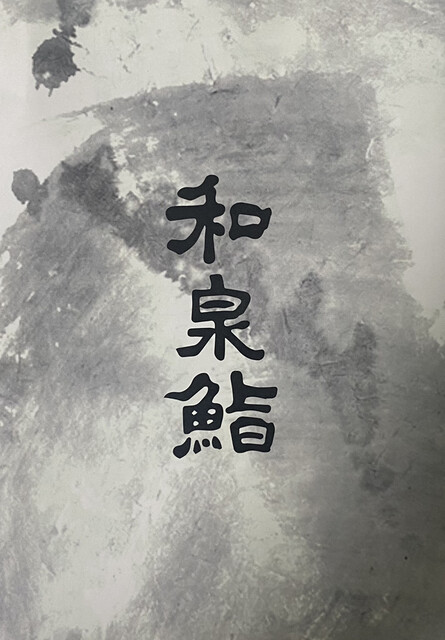 和泉鮨